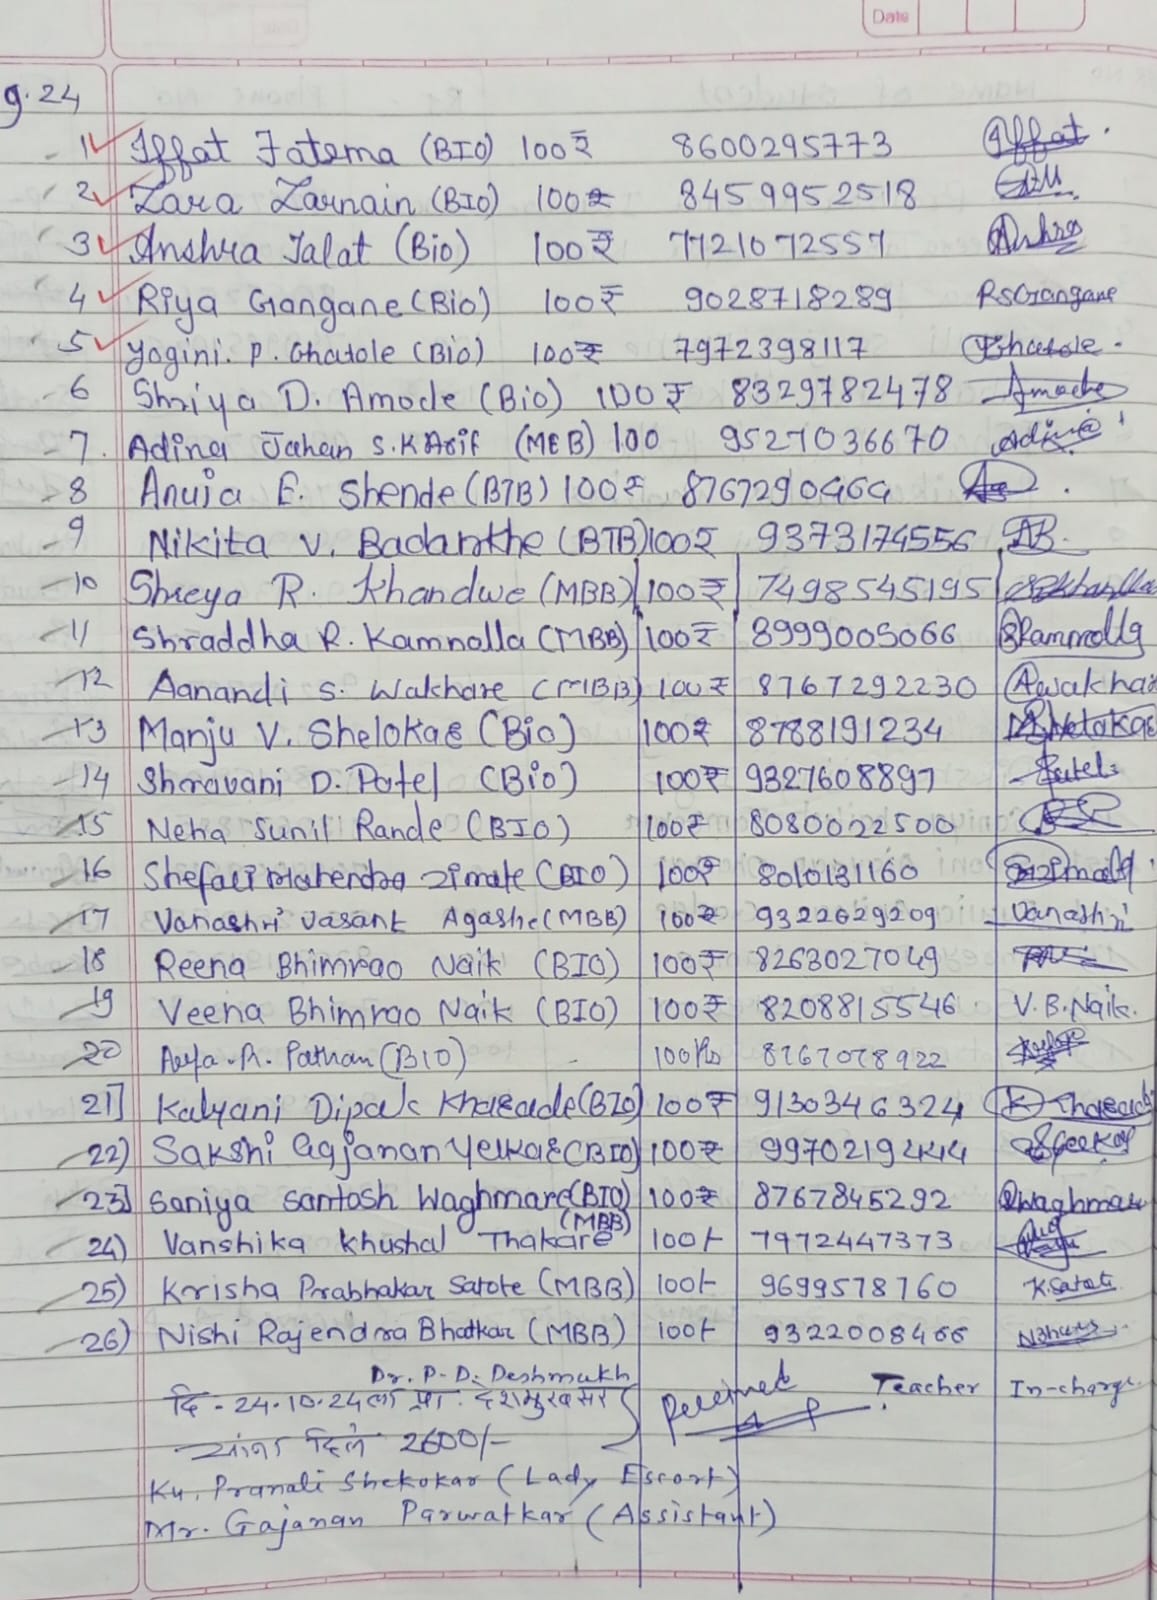 Date
9.24
1 Iffat Fatema (BIO) 100₹ 8600295773 Iffat.
2 Zara Zarnain (BIO) 100₹ 8459952518
3 Anshra Talat (Bio) 100₹ 7721072557 Anshra
4 Riya Gangane (Bio) 100₹ 9028718289 RSGangane
5 Yogini. P. Ghatole (Bio) 100₹ 7972398117 Ghatole.
6 Shriya D. Amode (Bio) 100₹ 8329782478 Amode
7. Adina Jahan S.K Arif (MEB) 100 9527036670 Adina
8 Anuja E. Shende (BTB) 100₹ 8767290464
9 Nikita V. Badarkhe (BTB) 100₹ 9373174556
10 Shreya R. Khandwe (MBB) 100₹ 7498545195
11 Shraddha R. Kamnolla (MBB) 100₹ 8999005066 SKamnolla
12 Aanandi S. Wakhare (MBB) 100₹ 8767292230 Awakha
13 Manju V. Shelokar (Bio) 100₹ 8788191234
14 Sharavani D. Patel (Bio) 100₹ 9327608897 Patel
15 Neha Sunil Rande (BIO) 100₹ 8080022500
16 Shefali Mahendra Zimate (BIO) 100₹ 8010131160
17 Vanashri Vasant Agashe (MBB) 100₹ 9322629209 Vanashri
18 Reena Bhimrao Naik (BIO) 100₹ 8263027049
19 Veena Bhimrao Naik (BIO) 100₹ 8208815546 V.B.Naik.
20 R. Pathan (BIO) 100Rs 8767078922
21] Kalyani Dipak Kharade (BIO) 100₹ 9130346324
22) Sakshi Gajanan Yelkar (BIO) 100₹ 9970219444
23] Saniya Santosh Waghmare (BIO) 100₹ 8767845292 Swaghmare
24) Vanshika Khushal Thakare (MBB) 100/- 7972447373
25) Krisha Prabhakar Satote (MBB) 100/- 9699578760 K.Satote
26) Nishi Rajendra Bhatkar (MBB) 100/- 9322008466
Dr. P. D. Deshmukh
दि - 24.10.24 ला प्रा. देशमुख सर Received Teacher In-charge
यांना दिले 2600/-
Ku. Pranali Shekokar (Lady Escort)
Mr. Gajanan Parwatkar (Assistant)